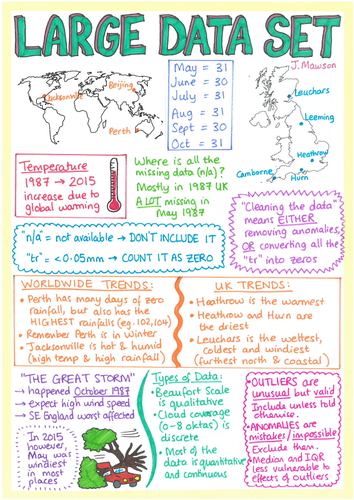 LARGE DATA SET
J. Mawson
Beijing
Jacksonville
Perth
May = 31
June = 30
July = 31
Aug = 31
Sept = 30
Oct = 31
Leuchars
Leeming
Heathrow
Camborne
Hurn
Temperature
1987 → 2015
increase due to
global warming
Where is all the
missing data (n/a)?
Mostly in 1987 UK
A LOT missing in
May 1987
"Cleaning the data"
means EITHER
removing anomalies
OR converting all the
"tr" into zeros
"n/a" = not available → DON'T INCLUDE IT
"tr" = < 0.05mm → COUNT IT AS ZERO
WORLDWIDE TRENDS:
• Perth has many days of zero
rainfall, but also has the
HIGHEST rainfalls (eg. 102,104)
• Remember Perth is in Winter
• Jacksonville is hot & humid
(high temp & high rainfall)
UK TRENDS:
• Heathrow is the warmest
• Heathrow and Hurn are
the driest
• Leuchars is the wettest,
coldest and windiest
(furthest north & coastal)
"THE GREAT STORM"
→ happened October 1987
→ expect high wind speed
→ SE England worst affected
In 2015
however,
May was
windiest
in most
places
Types of Data:
• Beaufort Scale
is qualitative
• Cloud coverage
(0-8 oktas) is
discrete
• Most of the
data is quantitative
and continuous
• OUTLIERS are
unusual but valid
Include unless told
otherwise.
• ANOMALIES are
mistakes / impossible
Exclude them.
• Median and IQR
less vulnerable to
effects of outliers